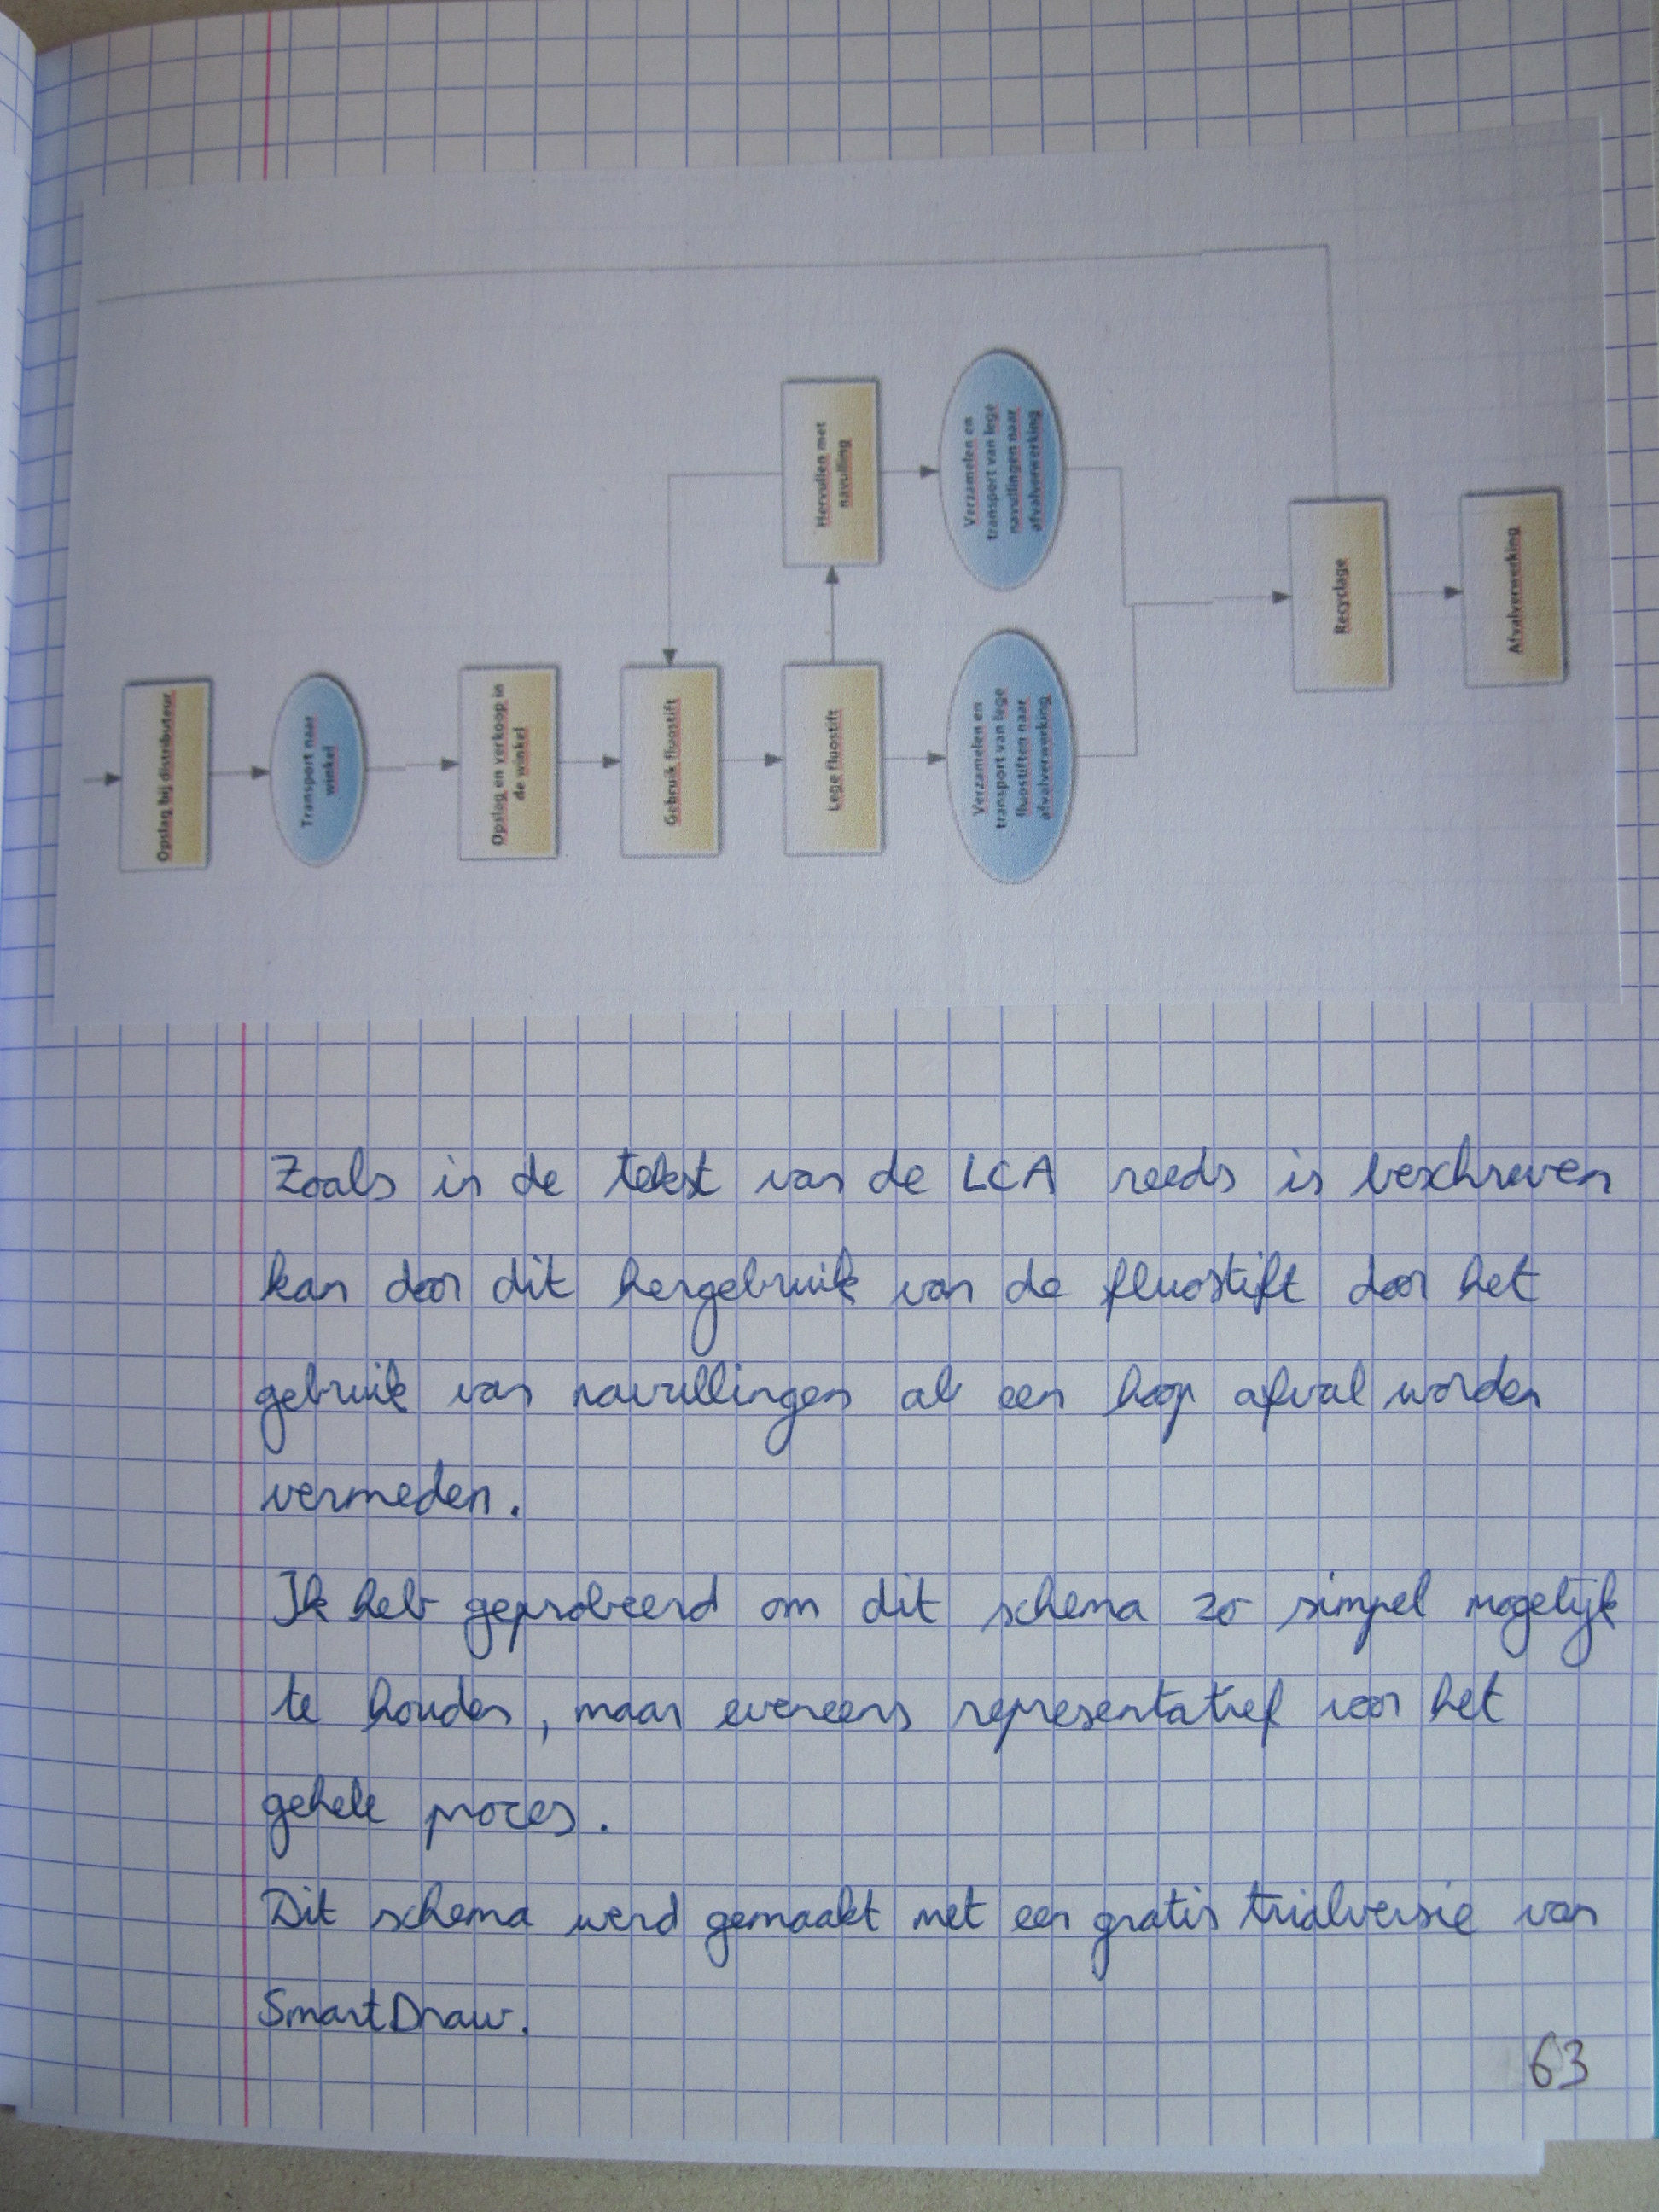 Opslag bij distributeur
Transport naar
winkel
Opslag en verkoop in
de winkel
Gebruik fluostift
Lege fluostift
Hervullen met
navulling
Verzamelen en
transport van lege
fluostiften naar
afvalverwerking
Verzamelen en
transport van lege
navullingen naar
afvalverwerking
Recyclage
Afvalverwerking
Zoals in de tekst van de LCA reeds is beschreven
kan door dit hergebruik van de fluostift door het
gebruik van navullingen al een hoop afval worden
vermeden.
Ik heb geprobeerd om dit schema zo simpel mogelijk
te houden, maar eveneens representatief voor het
gehele proces.
Dit schema werd gemaakt met een gratis trialversie van
SmartDraw.
63